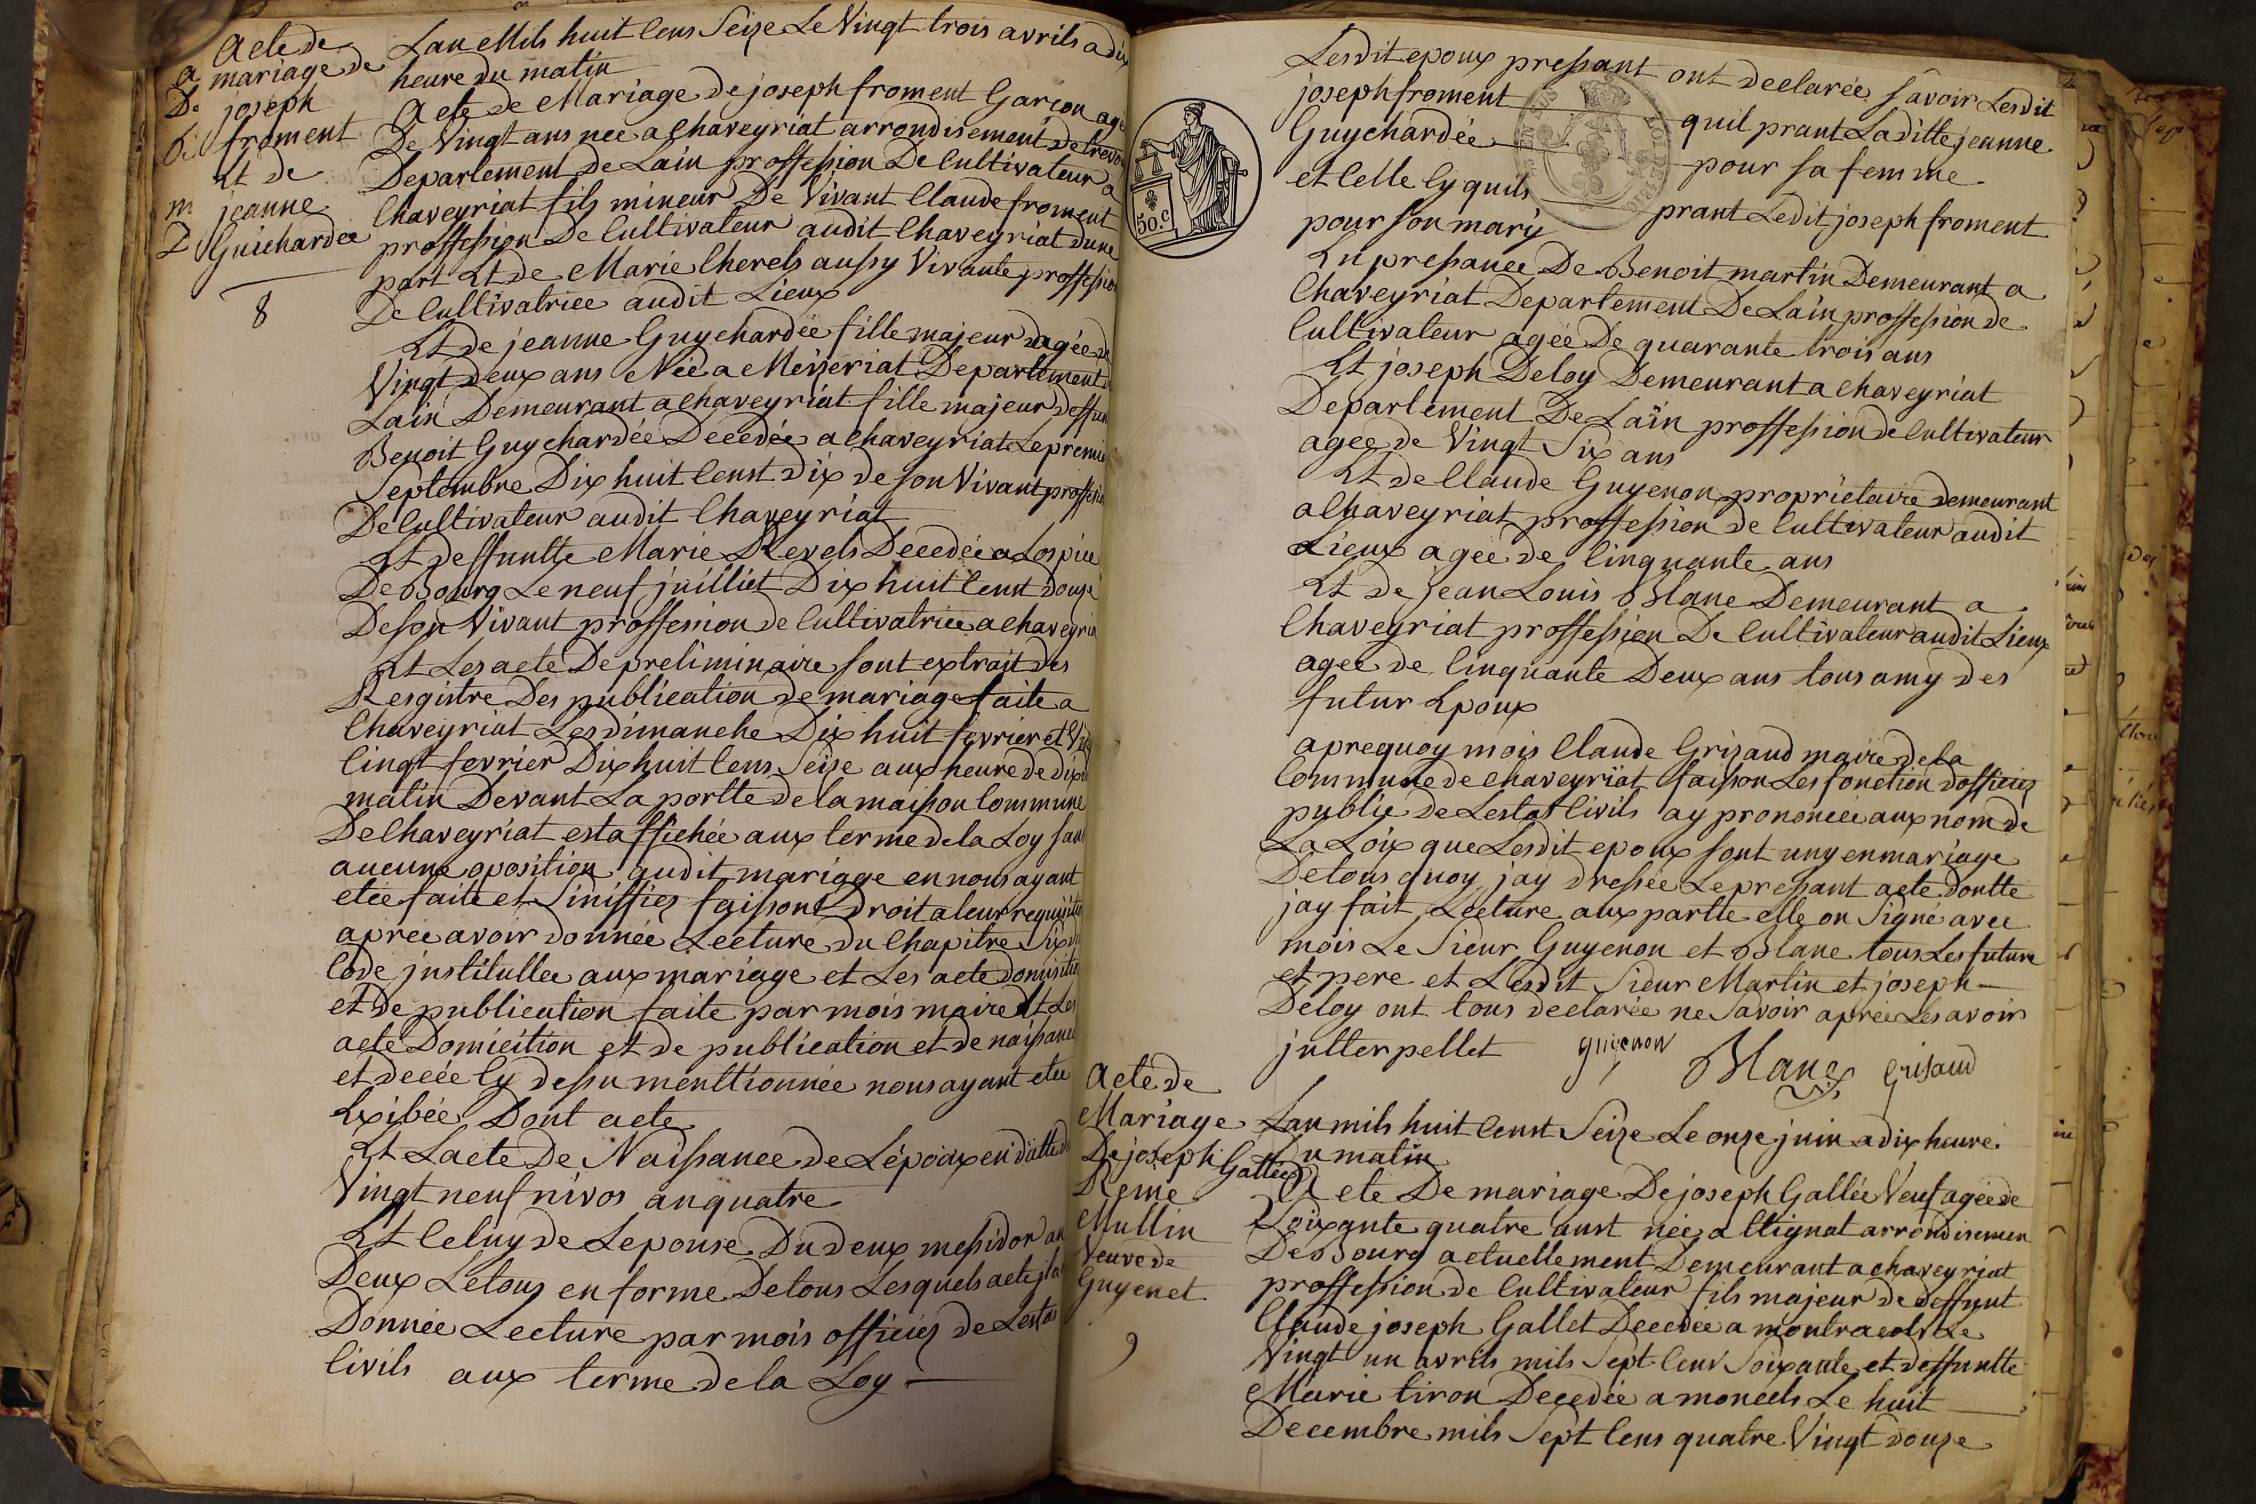 Acte de
mariage de
joseph
froment
Et de
jeanne
Guichardée
8
Lan Mils huit Cens Seize Le Vingt trois avrils a dix
heure du matin
Acte de Mariage de joseph froment Garçon agé
De Vingt ans née a Chaveyriat arrondisement de trevo
Departement de Lain proffession De Cultivateur a
Chaveyriat fils mineur De Vivant Claude froment
proffession De Cultivateur audit Chaveyriat dune
part Et de Marie Cherels aussy Vivante proffession
De Cultivatrice audit Lieux
Et de jeanne Guychardée fille majeur agée de
Vingt deux ans Née a Mézeriat Departement
Lain Demeurant a Chaveyriat fille majeur deffun
Benoit Guychardée Decedée a Chaveyriat Le premie
Septembre Dix huit Censt dix de son Vivant proffession
De Cultivateur audit Chaveyriat
Et deffuntte Marie Revels Decedée a Lospice
De Bourg Le neuf juilliet Dix huit Censt douze
De son Vivant proffession de Cultivatrice a Chaveyria
Et Les acte De preliminaire sont extrait des
Resgistre Des publication de mariage faite a
Chaveyriat Les dimanche Dix huit fevrier et Vin
Cinqt fevrier Dix huit Cens Seize aux heure de dix du
matin Devant La portte de la maisson Commune
De Chaveyriat est affichée aux terme de la Loy sans
aucune oposition audit mariage en nous ayant
etée faite et Siniffiez faissont droit a leur requisition
aprée avoir donnée Lecture du Chapitre Six du
Code justitullee aux mariage et Les acte domisition
et de publication faite par mois maire Et Les
acte Domicition et de publication et de naissance
et decée Cy dessu menttionnée nous ayant etée
Exibée Dont acte
Et Lacte De Naissance de Lépoux en datte du
Vingt neuf nivos an quatre
Et Celuy de Lepouse Du deux messidor an
Deux Le tous en forme De tous Lesquels acte jla
Donnée Lecture par mois officiez de Lestas
Civils aux terme de la Loy
50.c
Lesdit epoux pressant ont declarée savoir Lesdit
joseph froment quil prant La ditte jeanne
Guychardée pour sa femme
et Celle Cy quils prant Ledit joseph froment
pour son mary
En pressance De Benoit martin Demeurant a
Chaveyriat Departement De Lain proffession de
Cultivateur agée De quarante trois ans
Et joseph Deloy Demeurant a Chaveyriat
Departement De Lain proffession de Cultivateur
agee de Vingt Six ans
Et de Claude Guyenon proprietaire demeurant
a Chaveyriat proffession de Cultivateur audit
Lieux agée de Cinquante ans
Et de Jean Louis Blanc Demeurant a
Chaveyriat proffession De Cultivateur audit Lieux
agee de Cinquante Deux ans tous amy des
futur Epoux
aprequoy mois Claude Grizaud maire de la
Commune de Chaveyriat faisson Les fonction dofficiez
public de Lestat Civils ay prononcée aux nom de
La Loix que Lesdit epoux sont uny en mariage
De tous quoy jay dressée Le pressant acte dontte
jay fait Lecture aux partte elle on Signé avec
mois Le Sieur Guyenon et Blanc tous Les future
et pere et Lesdit Sieur Martin et joseph
Deloy ont tous declarée ne Savoir aprée Les avoir
jntterpellet guyenon Blanc grisaud
Acte de
Mariage
De joseph Gallée
Reine
Mullin
Veuve de
Guyenet
9
Lan mils huit Censt Seize Le onze juin a dix heure
Du matin
Acte De mariage De joseph Gallée Veuf agée de
Soixante quatre anst née a Attignat arrondisemen
De Bourg actuellement Demeurant a Chaveyriat
proffession de Cultivateur fils majeur de deffunt
Claude joseph Gallet Decedée a montracols Le
Vingt un avrils mils Sept Cens Soixante et deffuntte
Marie tiron Decedée a moncels Le huit
Decembre mils Sept Cens quatre Vingt douze